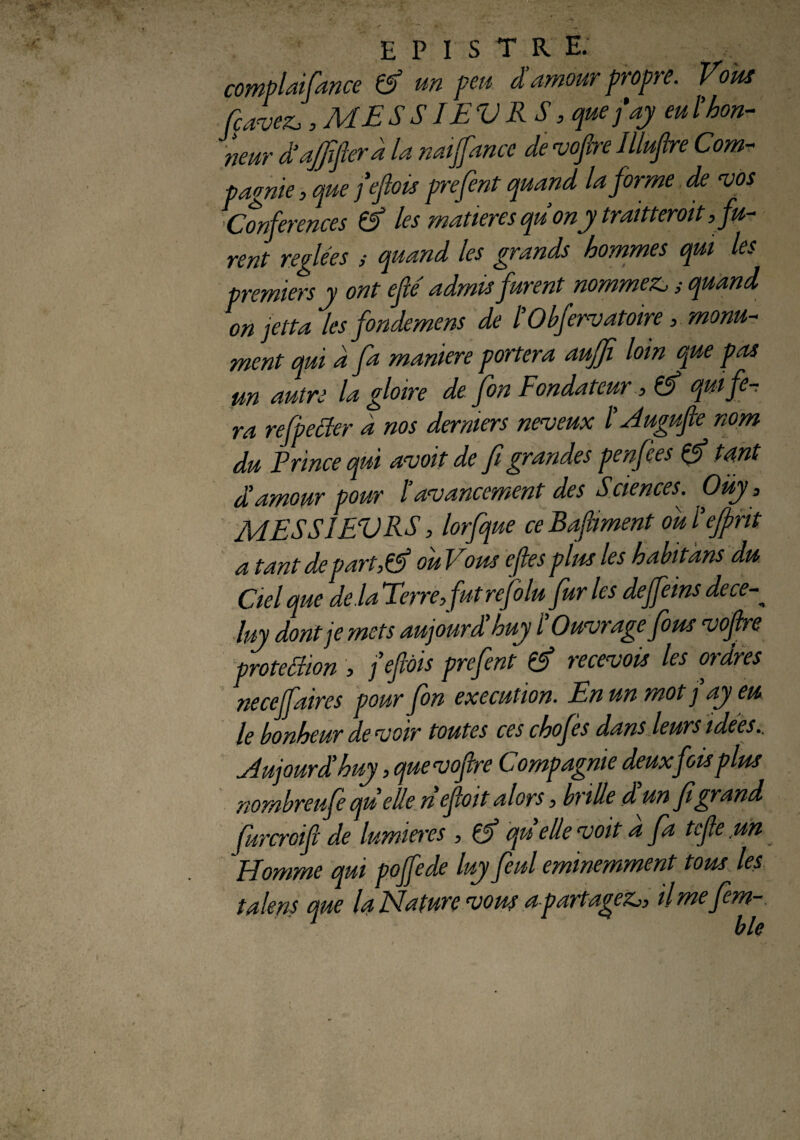 EPISTRE.
complaiſance & un peu d'amour propre. Vous
ſçavez, MESSIEVRS, que j'ay eu l'hon-
neur d'aſſiſter à la naiſſance de voſtre Illuſtre Com-
pagnie, que j'eſtois preſent quand la forme de vos
Conferences & les matieres qu'on y traitteroit, fu-
rent reglées ; quand les grands hommes qui les
premiers y ont eſté admis furent nommez ; quand
on jetta les fondemens de l'Obſervatoire, monu-
ment qui à ſa maniere portera auſſi loin que pas
un autre la gloire de ſon Fondateur, & qui fe-
ra reſpecter à nos derniers neveux l'Auguſte nom
du Prince qui avoit de ſi grandes penſées & tant
d'amour pour l'avancement des Sciences. Oüy,
MESSIEVRS, lorſque ce Baſtiment où l'eſprit
a tant de part, & où Vous eſtes plus les habitans du
Ciel que de la Terre, fut reſolu ſur les deſſeins de ce-
luy dont je mets aujourd'huy l'Ouvrage ſous voſtre
protection, j'eſtois preſent & recevois les ordres
neceſſaires pour ſon execution. En un mot j'ay eu
le bonheur de voir toutes ces choſes dans leurs idées.
Aujourd'huy, que voſtre Compagnie deux fois plus
nombreuſe qu'elle n'eſtoit alors, brille d'un ſi grand
ſurcroiſt de lumieres, & qu'elle voit à ſa teſte un
Homme qui poſſede luy ſeul eminemment tous les
talens que la Nature vous a partagez, il me ſem-
ble